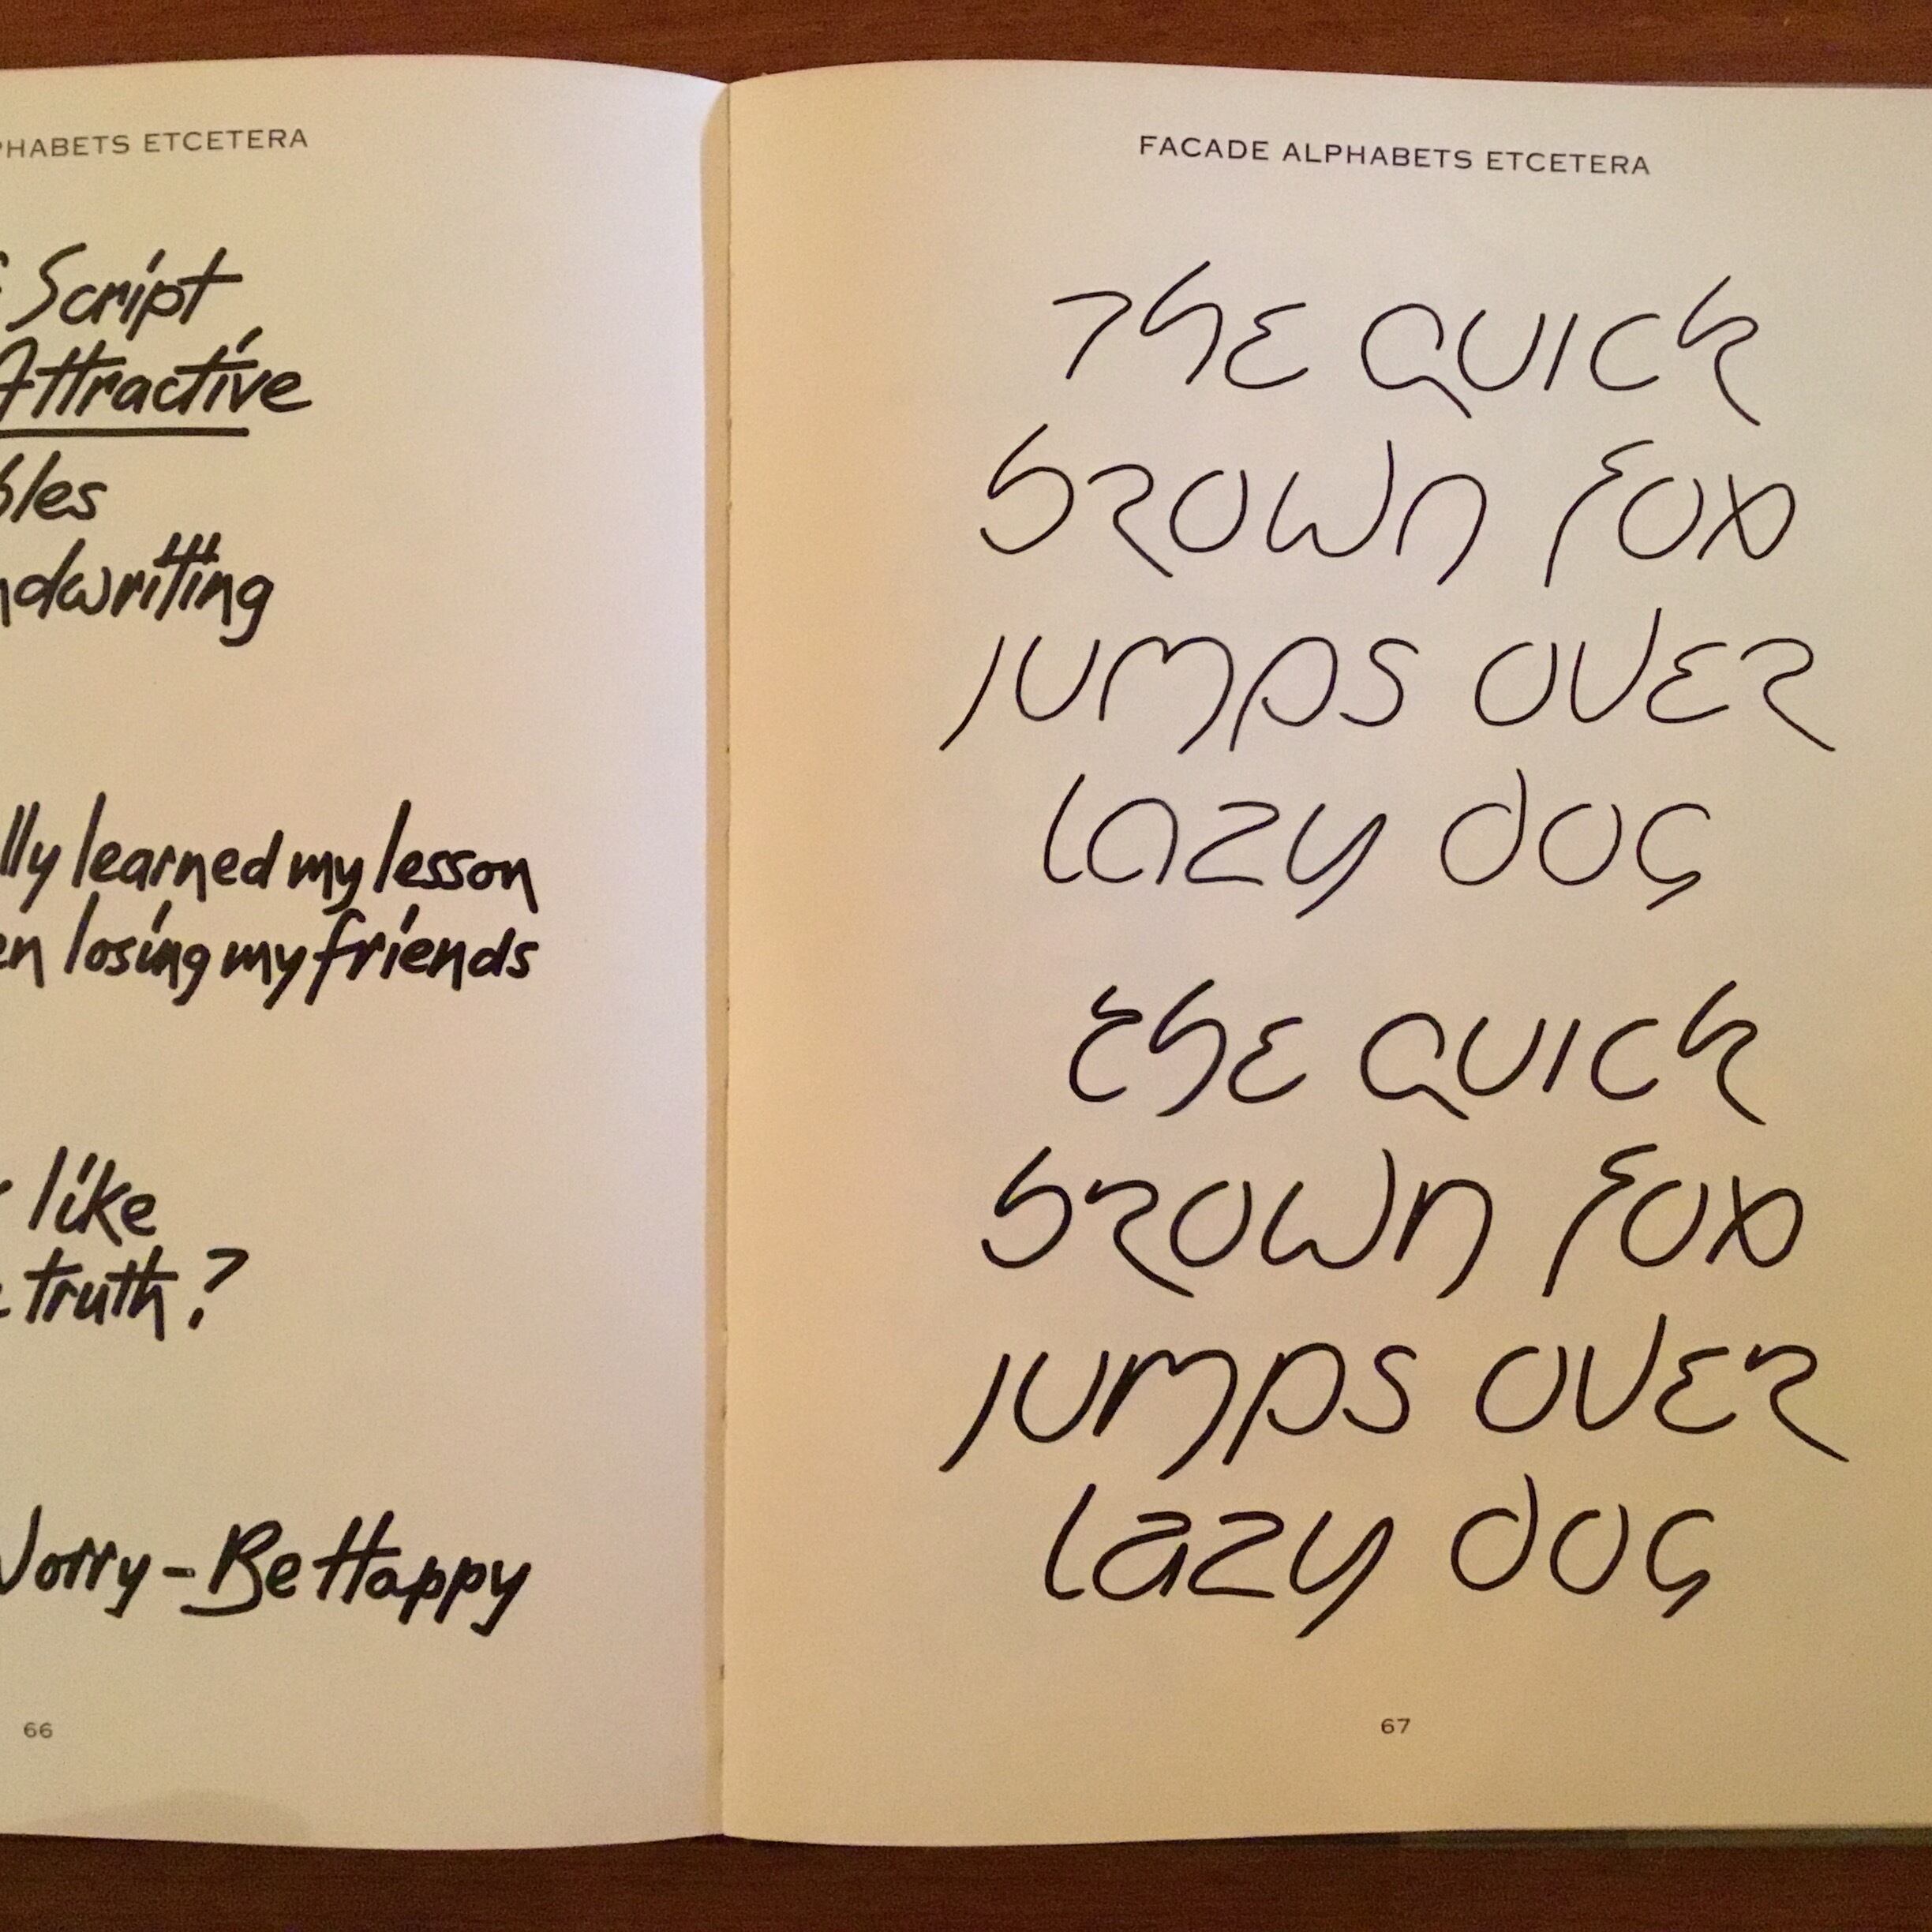 PHABETS ETCETERA
Script
Attractive
bles
ndwriting
lly learned my lesson
en losing my friends
like
truth?
Worry-Be Happy
66
FACADE ALPHABETS ETCETERA
The quick
brown fox
jumps over
lazy dog
the quick
brown fox
jumps over
lazy dog
67